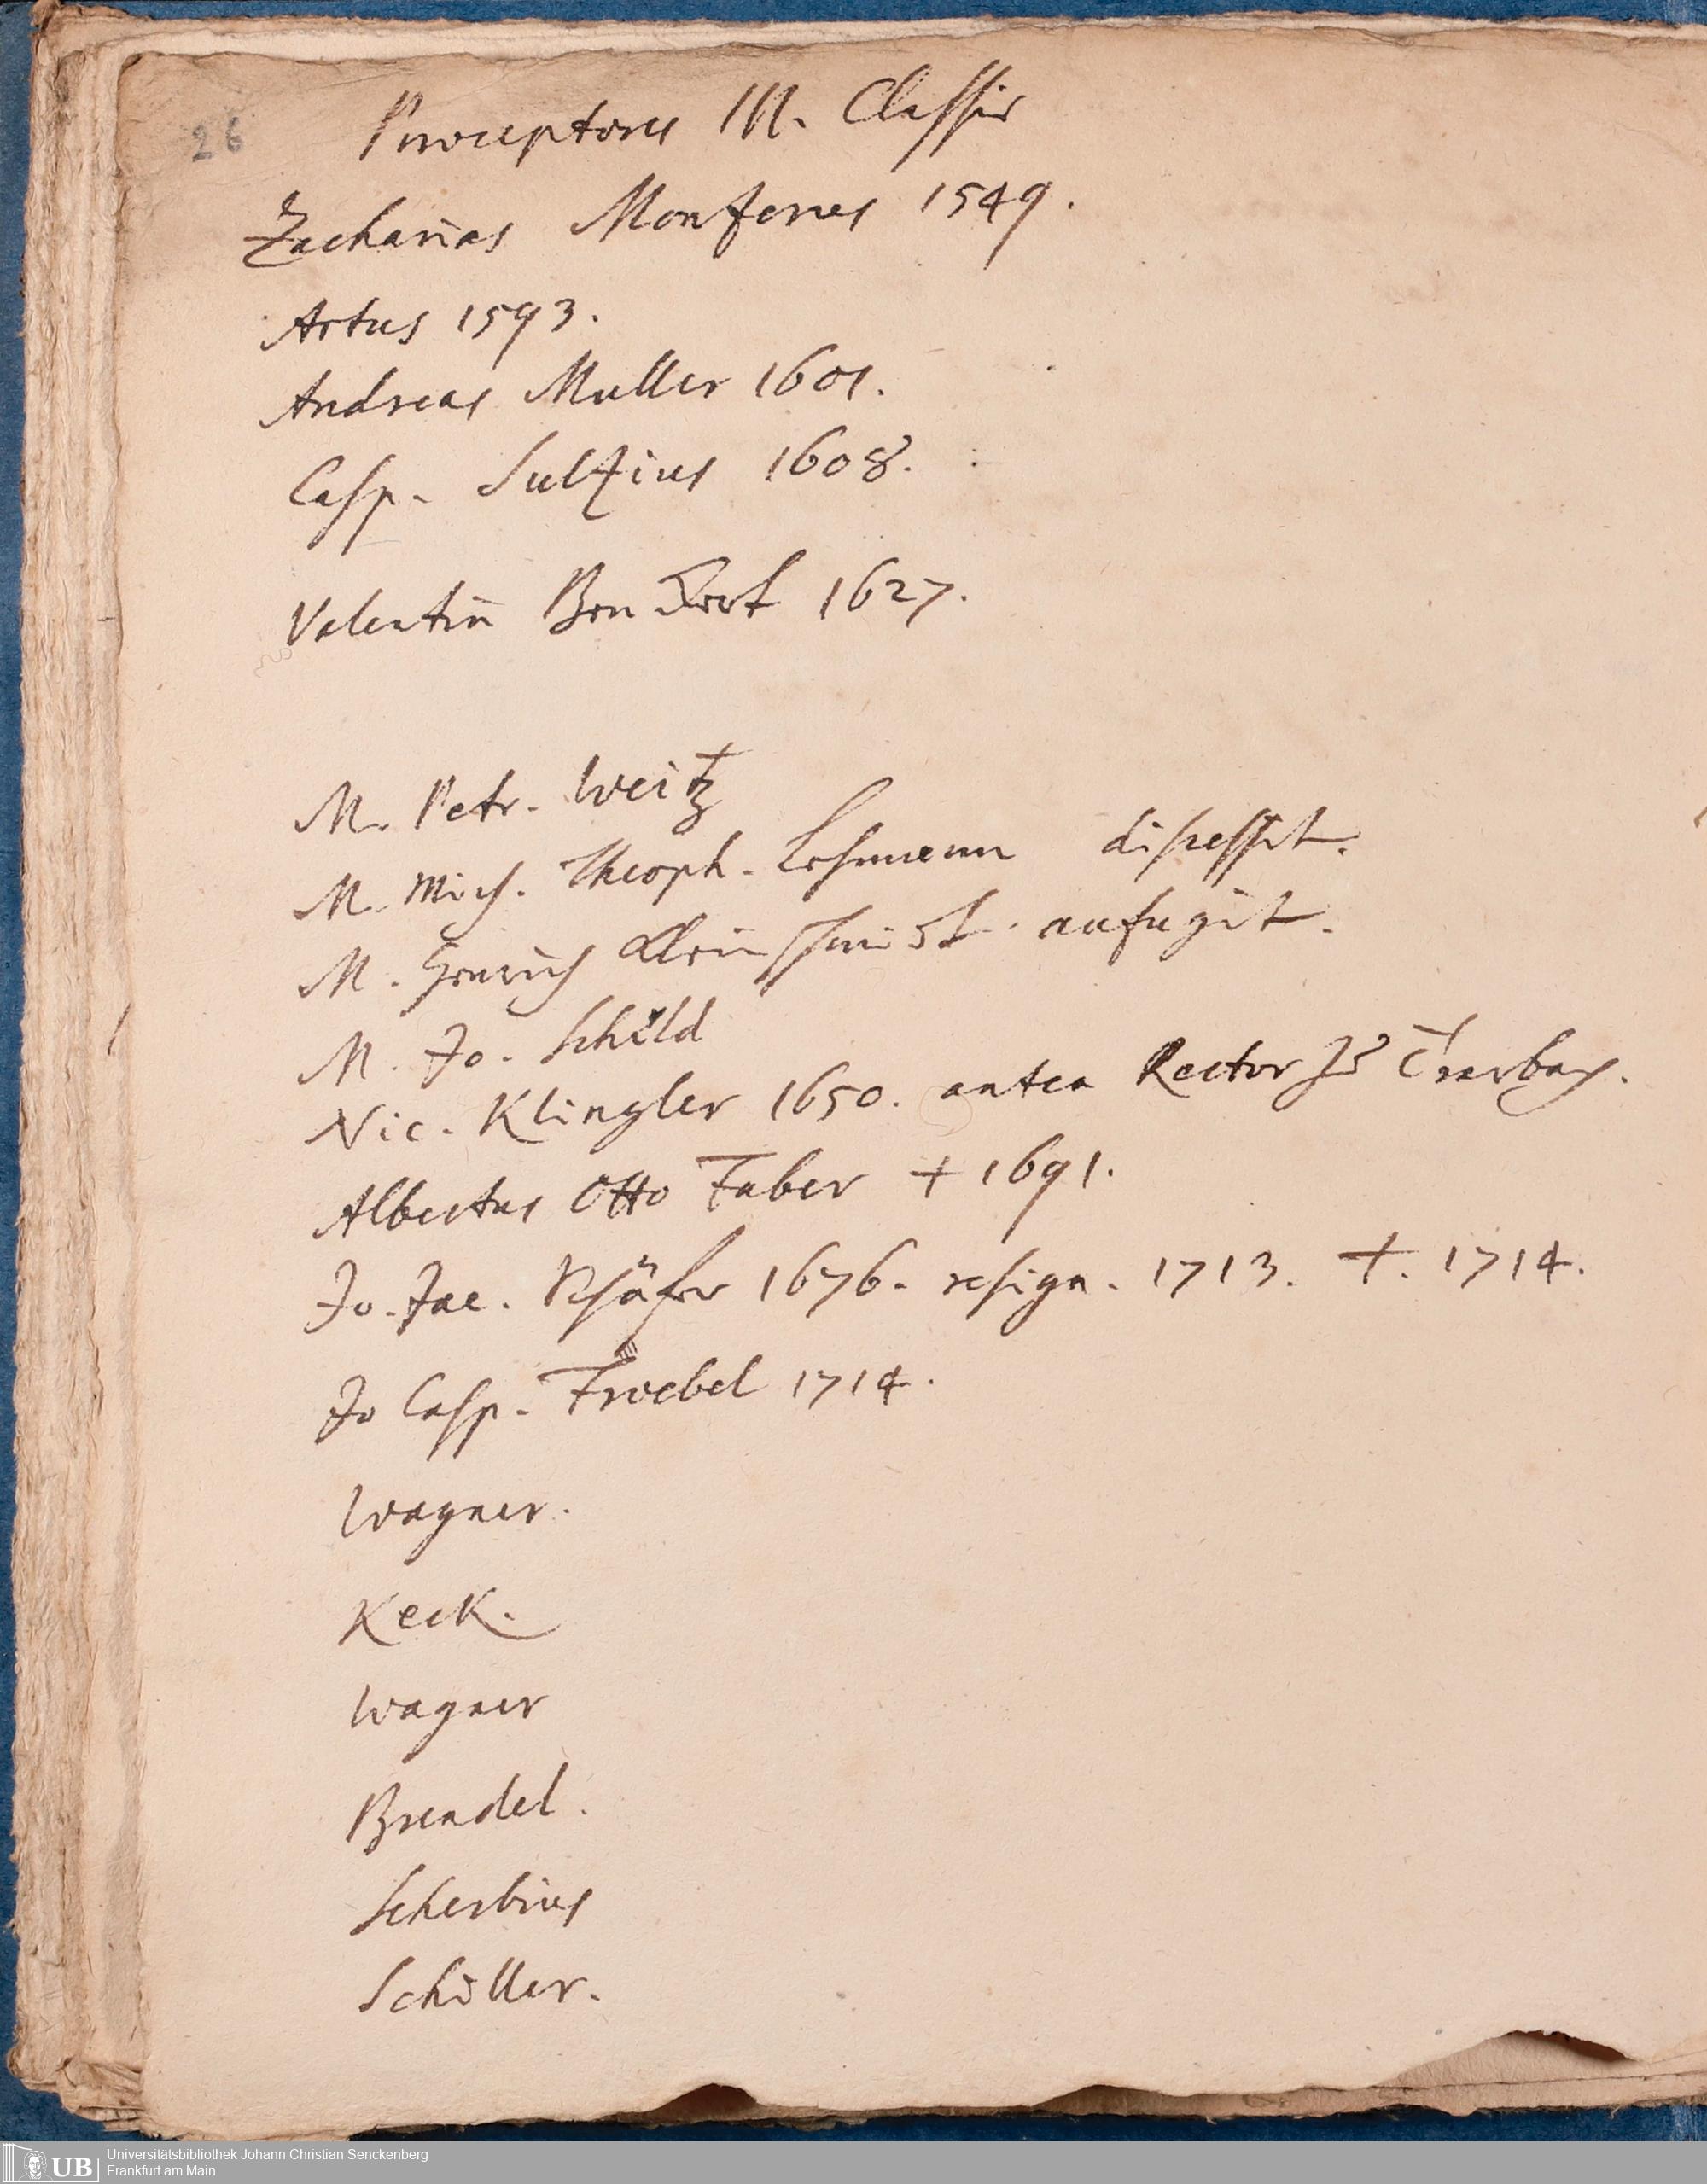 26
Praeceptores III. Classis
Zacharias Monfenes 1549.
Artus 1593.
Andreas Muller 1601.
Casp. Sultzius 1608.
Valentin 1627.
M. Petr. Weitz
M. Mich. Theoph. Lehmann discessit.
M. Henrich Kleinschmidt. aufugit.
M. Jo. Schild
Nic. Klingler 1650. antea Rector zu Trarbach.
Albertus Otto Faber + 1691.
Jo. Jac. Schäfer 1676. resign. 1713. +. 1714.
Jo Casp. Froebel 1714.
Wagner.
Keck.
Wagner
Brendel.
Scherbius
Schiller.
UB
Universitätsbibliothek Johann Christian Senckenberg
Frankfurt am Main